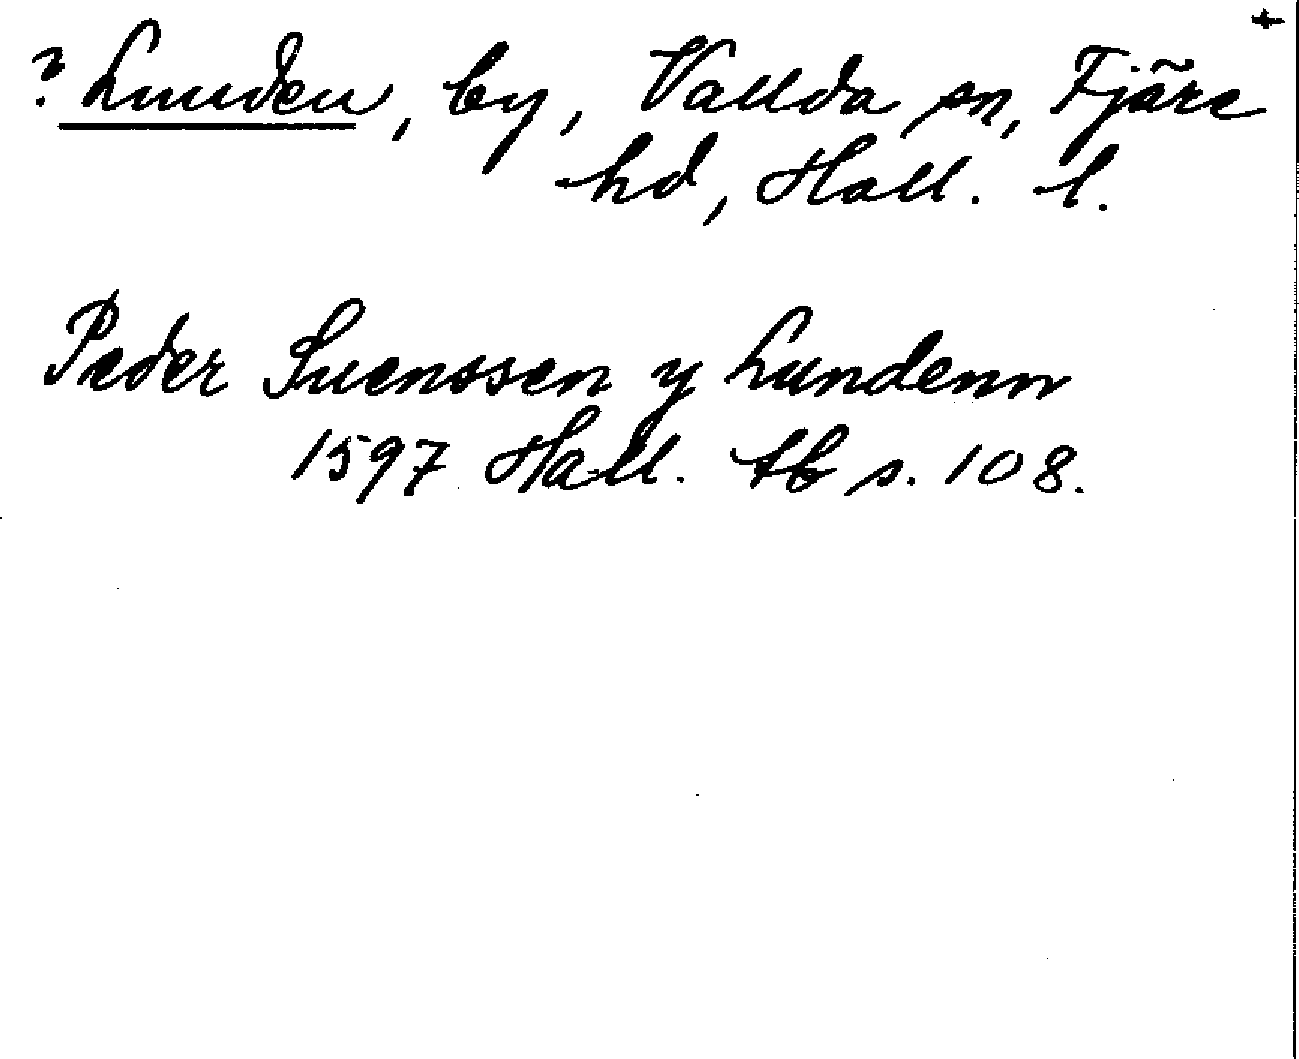 +
? Lunden, by, Vallda sn, Fjäre
hd, Hall. l.
Peder Suenssen y Lundenn
1597 Hall. tb s. 108.